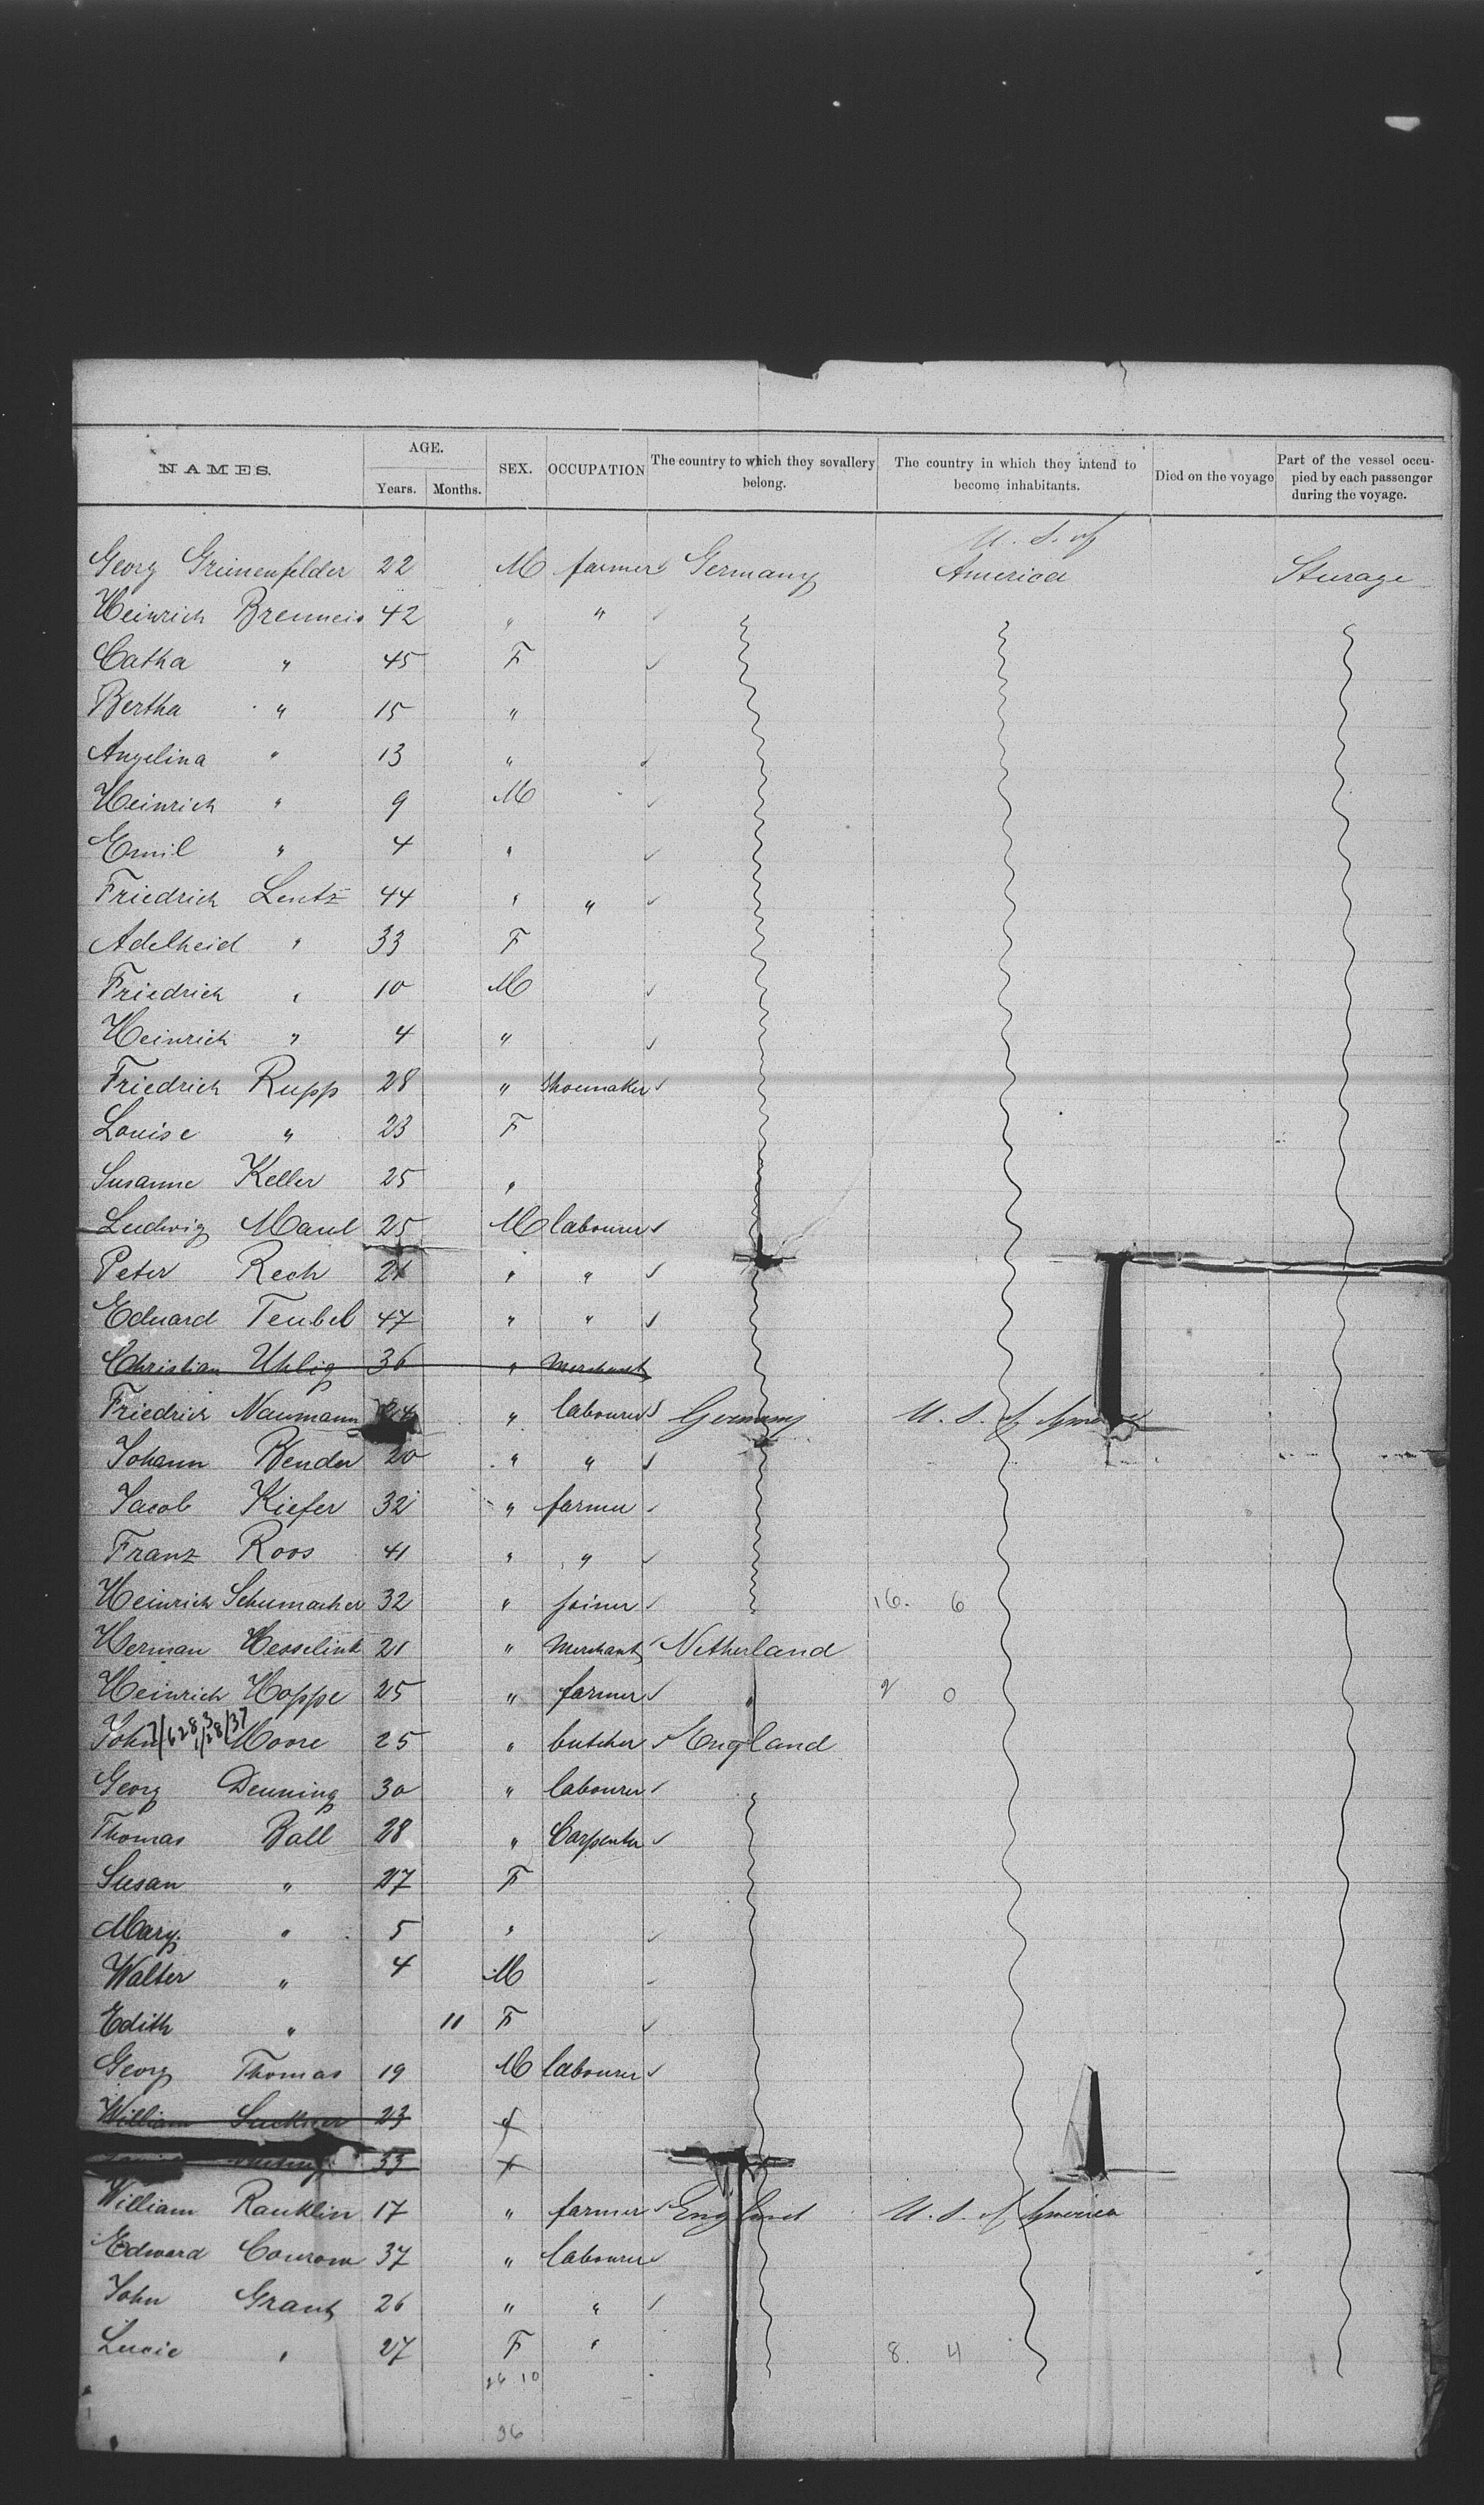 NAMES.
AGE.
Years.
Months.
SEX.
OCCUPATION
The country to which they sovallery
belong.
The country in which they intend to
become inhabitants.
Died on the voyage
Part of the vessel occu-
pied by each passenger
during the voyage.
U. S. of
Georg Grünenfelder 22 M farmer Germany America Sturage
Heinrich Brenneis 42 " "
Catha " 45 F
Bertha " 15 "
Angelina " 13 "
Heinrich " 9 M
Emil " 4 "
Friedrich Lentz 44 " "
Adelheid " 33 F
Friedrich " 10 M
Heinrich " 4 "
Friedrich Rupp 28 " Shoemaker
Louise " 23 F
Susanne Keller 25 "
Ludwig Maul 25 M labourer
Peter Rech 21 " "
Eduard Teubel 47 " "
Christian Uhlig 36 " Merchant
Friedrich Naumann 24 " labourer Germany U. S. of America
Johann Bender 20 " "
Jacob Kiefer 32 " farmer
Franz Roos 41 " "
Heinrich Schumacher 32 " joiner 16. 6
Herman Hesselink 21 " Merchant Netherland
Heinrich Hoppe 25 " farmer " 2 0
John Moore 25 " butcher England
Georg Denning 30 " labourer "
Thomas Ball 28 " Carpenter
Susan " 27 F
Mary " 5 "
Walter " 4 M
Edith " 11 F
Georg Thomas 19 M labourer
William 23
33
William Ranklin 17 " farmer England U. S. of America
Edward 37 " labourer
John Grant 26 " "
Lucie " 27 F " 8. 4
26 10
36